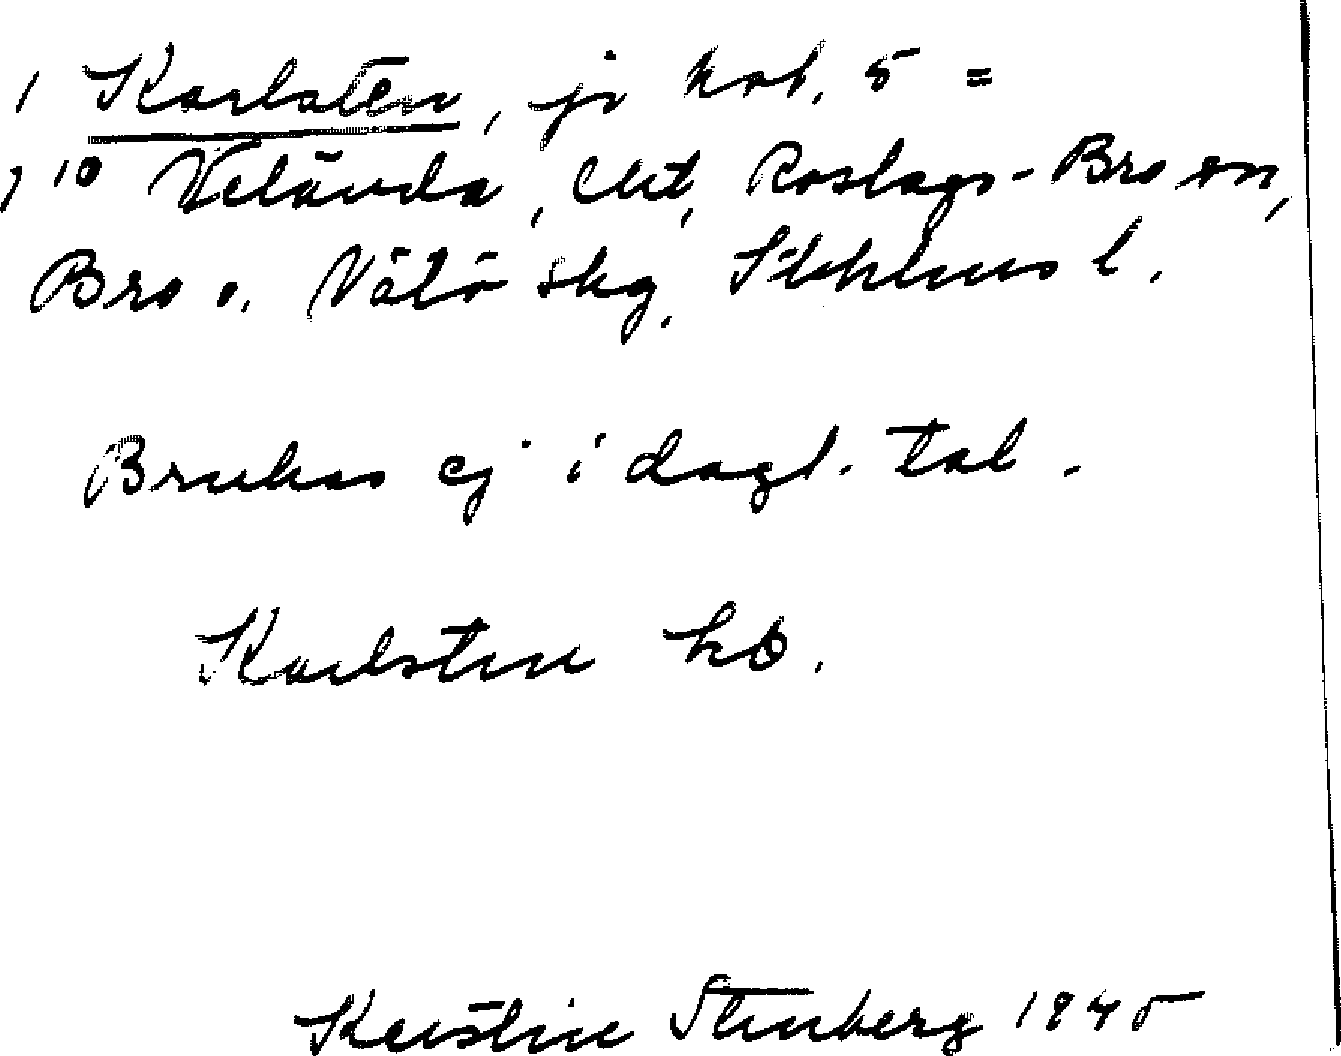 1 Karlsten, jr kat. 5 =
1 10 Velävda, Utt, Roslags-Bro sn,
Bro o. Vätö skg, Sthlms l.
Brukas ej i dagl. tal.
Karlsten kb.
Kerstin Stenberg 1945